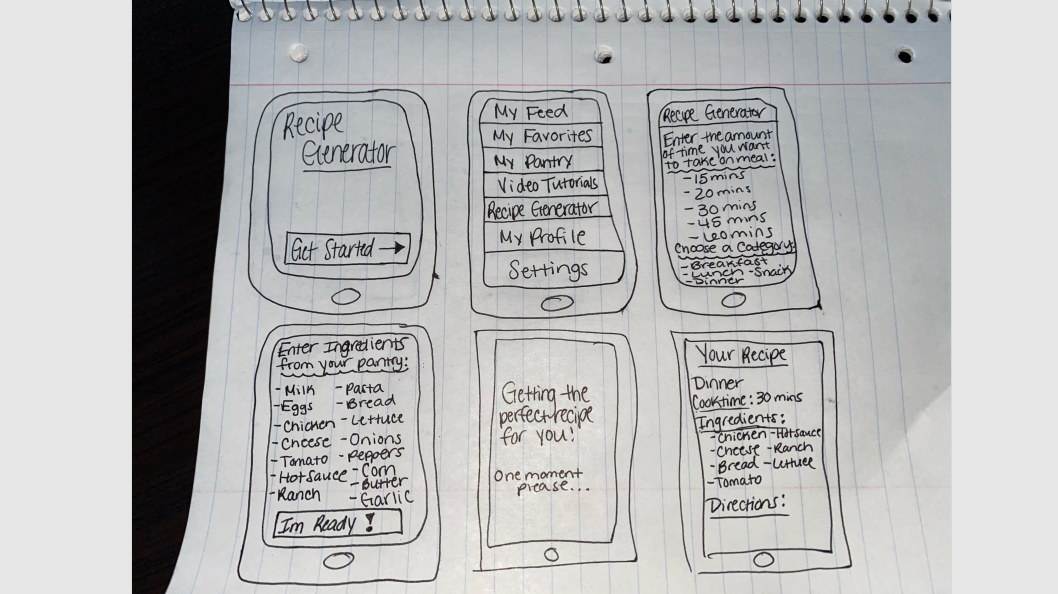 Recipe
Generator
Get Started →
My Feed
My Favorites
My Pantry
Video Tutorials
Recipe Generator
My Profile
Settings
Recipe Generator
Enter the amount
of time you want
to take on meal:
-15 mins
-20 mins
-30 mins
-45 mins
-60 mins
Choose a Category:
-Breakfast
-Lunch -Snack
-Dinner
Enter Ingredients
from your pantry:
-Milk -Pasta
-Eggs -Bread
-Chicken -Lettuce
-Cheese -Onions
-Tomato -Peppers
-Hot Sauce -Corn
-Butter
-Ranch -Garlic
Im Ready!
Getting the
perfect recipe
for you!
One moment
please...
Your Recipe
Dinner
Cooktime: 30 mins
Ingredients:
-Chicken -Hot sauce
-Cheese -Ranch
-Bread -Lettuce
-Tomato
Directions: